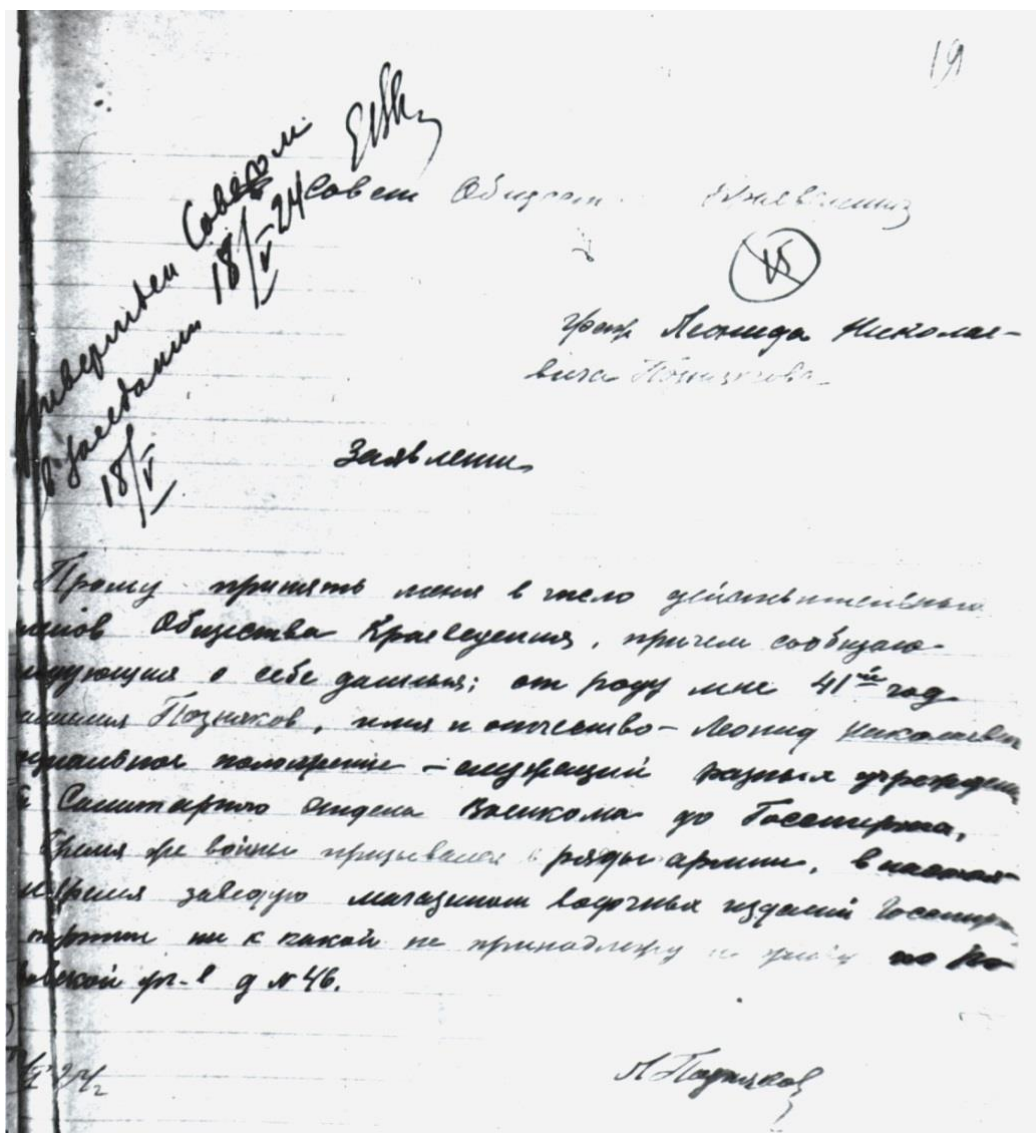 19
Утвержден Советом
в заседании 18/V 24
18/V
Совет Общест. Краеведения
15
граж. Леонида Николае-
вича Познякова
Заявление
Прошу принять меня в число действительных
членов Общества Краеведения, причем сообщаю
следующия о себе данныя; от роду мне 41й год
фамилия Позняков, имя и отчество - Леонид Николаевич
социальное положение - служащий разных учрежден
Санитарного отдела Военкома до Госспирта,
время же войны призывался в ряды армии, в настоя
время заведую магазином водочных изделий Госспирт
партии ни к какой не принадлежу и живу по
ул-е д № 46.
24
Л Позняков